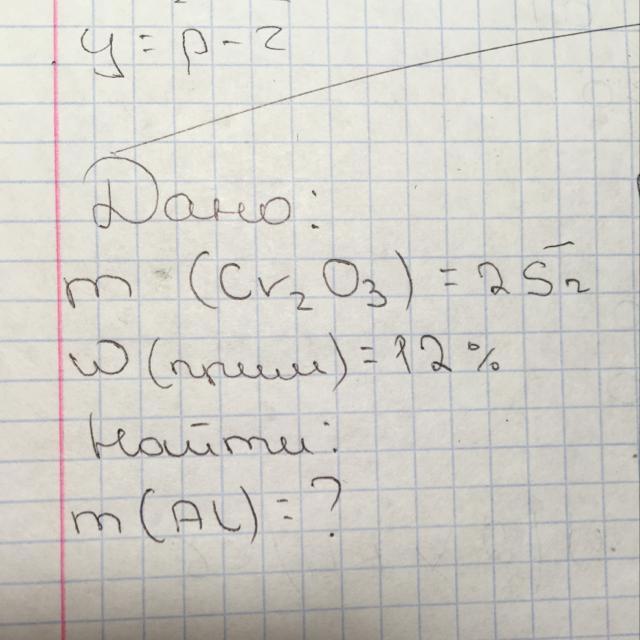 y = p - z
Дано:
m (Cr₂O₃) = 25г
W (прими) = 12%
Найти:
m (AL) = ?